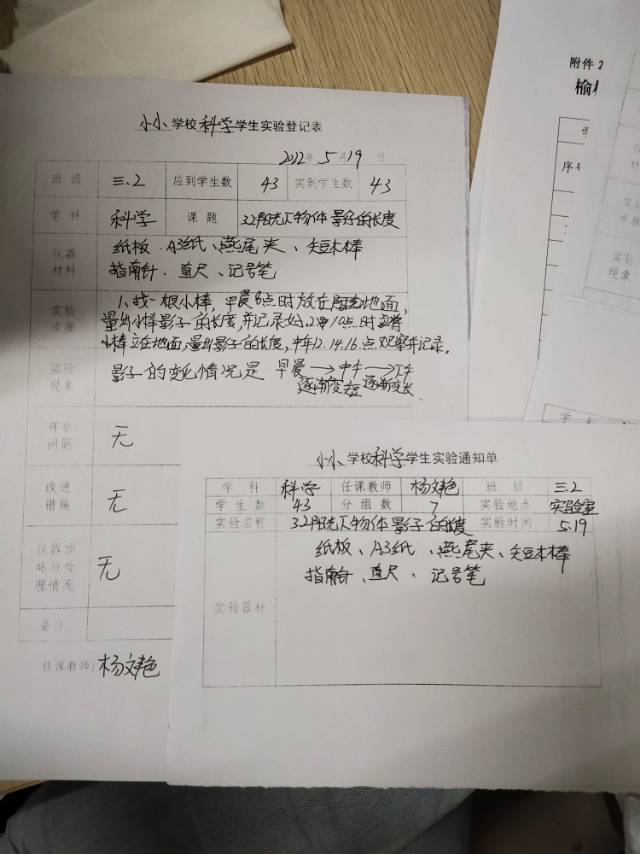 小小学校科学学生实验登记表
2022年5月19日
班级 三.2 应到学生数 43 实到学生数 43
学科 科学 课题 3.2阳光下物体影子的长度
仪器材料 纸板、A3纸、燕尾夹、短木棒
指南针、直尺、记号笔
实验步骤 1、找一根小棒,早晨8点时放在阳光地面,
量出小棒影子的长度,并记录好,上午10点时
小棒立在地面,量出影子的长度,中午12.14.16点观察并记录。
实验现象 影子的变化情况是 早晨→中午→下午
逐渐变短 逐渐变长
存在问题 无
改进措施 无
仪器损坏与处理情况 无
备注
任课教师:杨文艳
小小学校科学学生实验通知单
学科 科学 任课教师 杨文艳 班级 三.2
学生数 43 分组数 7 实验地点 实验室
实验名称 3.2阳光下物体影子的长度 实验时间 5.19
实验器材 纸板、A3纸、燕尾夹、短木棒
指南针、直尺、记号笔
附件2
榆
序
实验
现象